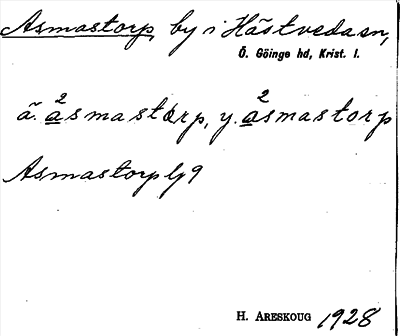 Asmastorp, by i Hästveda sn,
Ö. Göinge hd, Krist. l.
ä. ²asmastorp, y. ²asmastorp
Asmastorp lj 9
H. ARESKOUG 1928